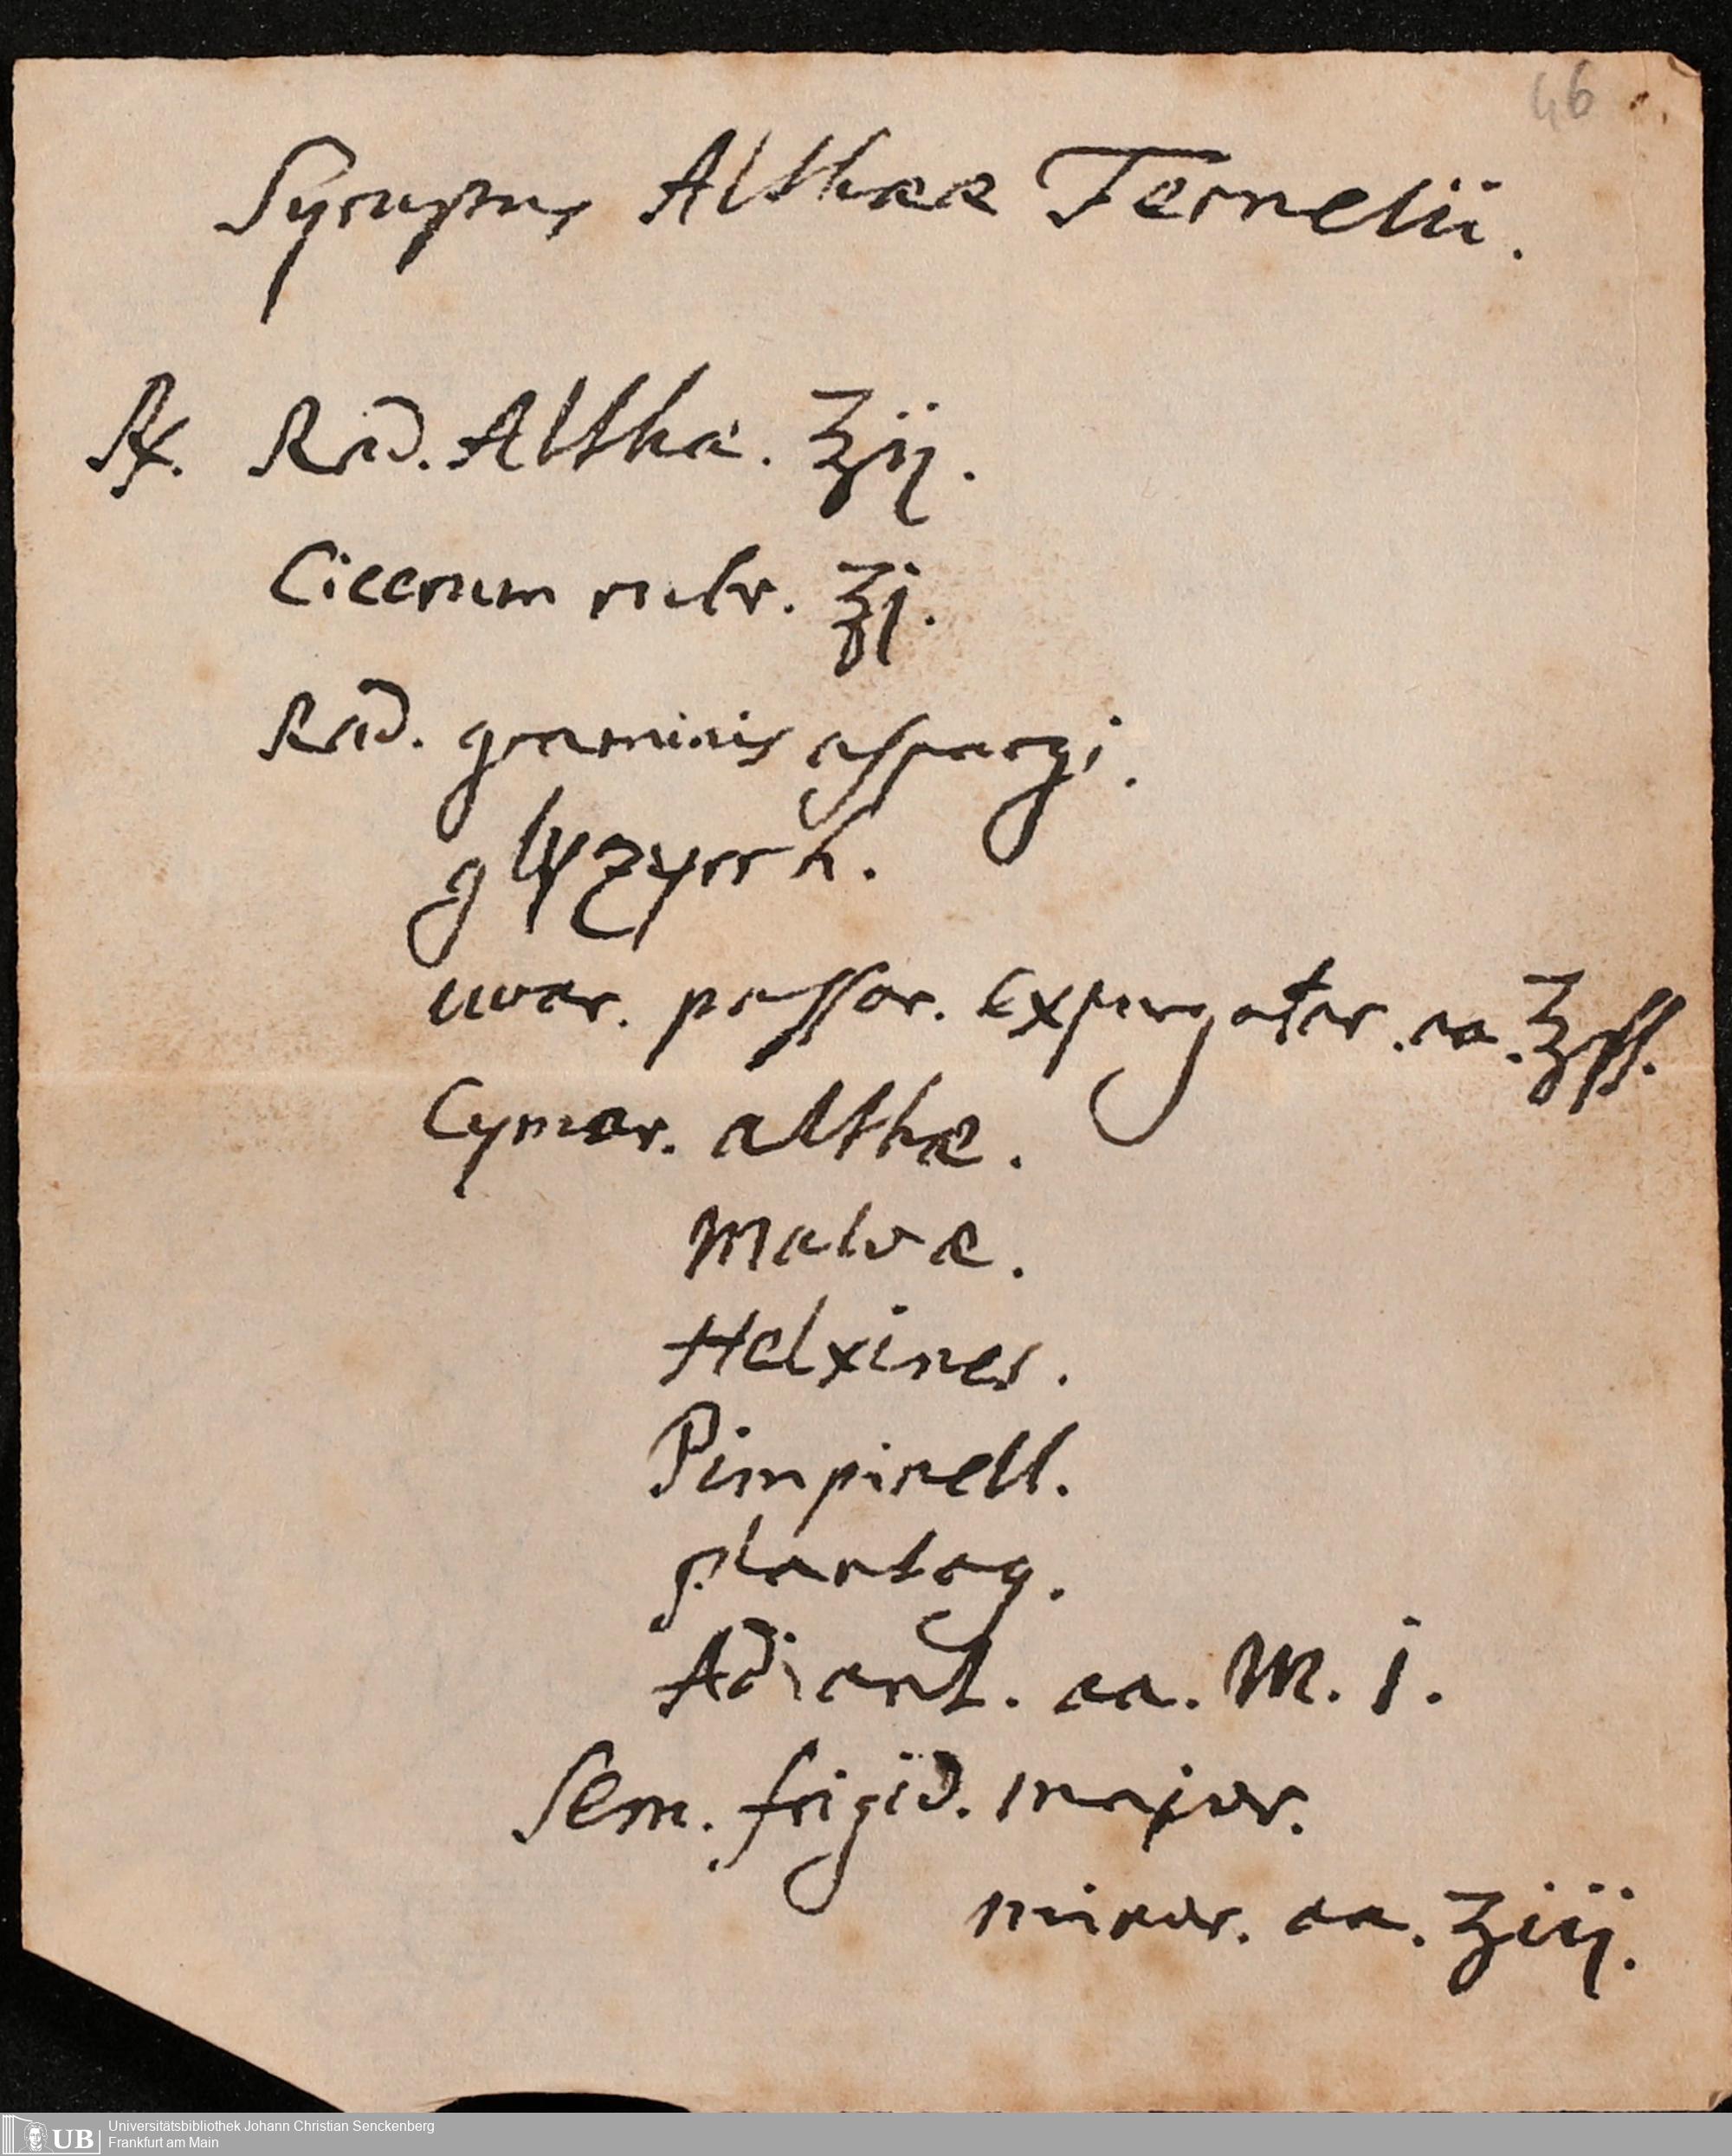 46
Syrupus Altheae Fernelii.
℞. Rad. Althae. ℥ij.
Cicerum rubr. ℥j.
Rad. graminis aspargi.
glyzyrrh.
uvar. passar. expurgatar. aa. ℥ß.
Cymar. althæ.
Malvæ.
Helxines.
Pimpinell.
plantag.
Adiant. aa. M. j.
Sem. frigid. major.
minor. aa. ʒiij.
UB Universitätsbibliothek Johann Christian Senckenberg
Frankfurt am Main